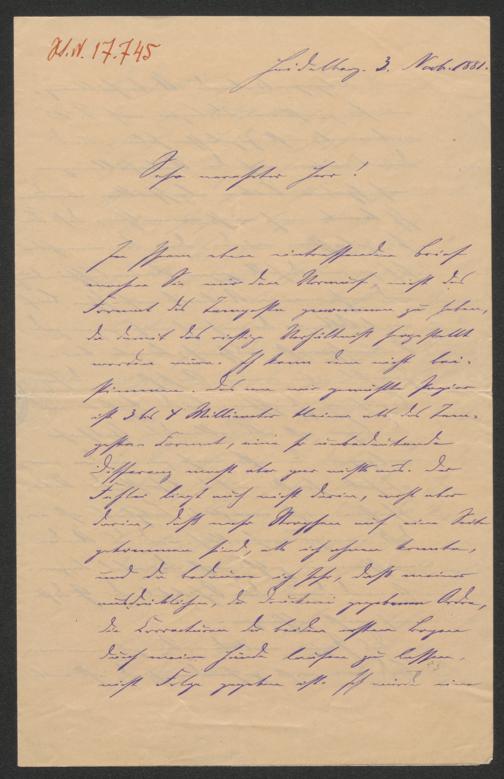 H.N. 17.745
Heidelberg. 3. Novb. 1881.
Sehr verehrter Herr!
In Ihrem eben eintreffenden Brief
machen Sie mir den Vorwurf, nicht das
Format des genommen zu haben,
da damit das richtige Verhältniß hergestellt
worden wäre. Ich kann dem nicht bei-
stimmen. Das von mir gewählte Papier
ist 3 bis 4 Millimeter kleiner als das
Format, eine so unbedeutende
Differenz macht aber gar nichts aus. Der
Fehler liegt auch nicht darin, wohl aber
darin, daß mehr Strophen auf eine Seite
gekommen sind, als ich ahnen konnte,
und da bedaure ich sehr, daß meiner
ausdrücklichen, der Druckerei gegebenen Ordre,
die Correcturen der beiden ersten Bogen
durch meine Hände laufen zu lassen,
nicht Folge gegeben ist. Ich würde eine